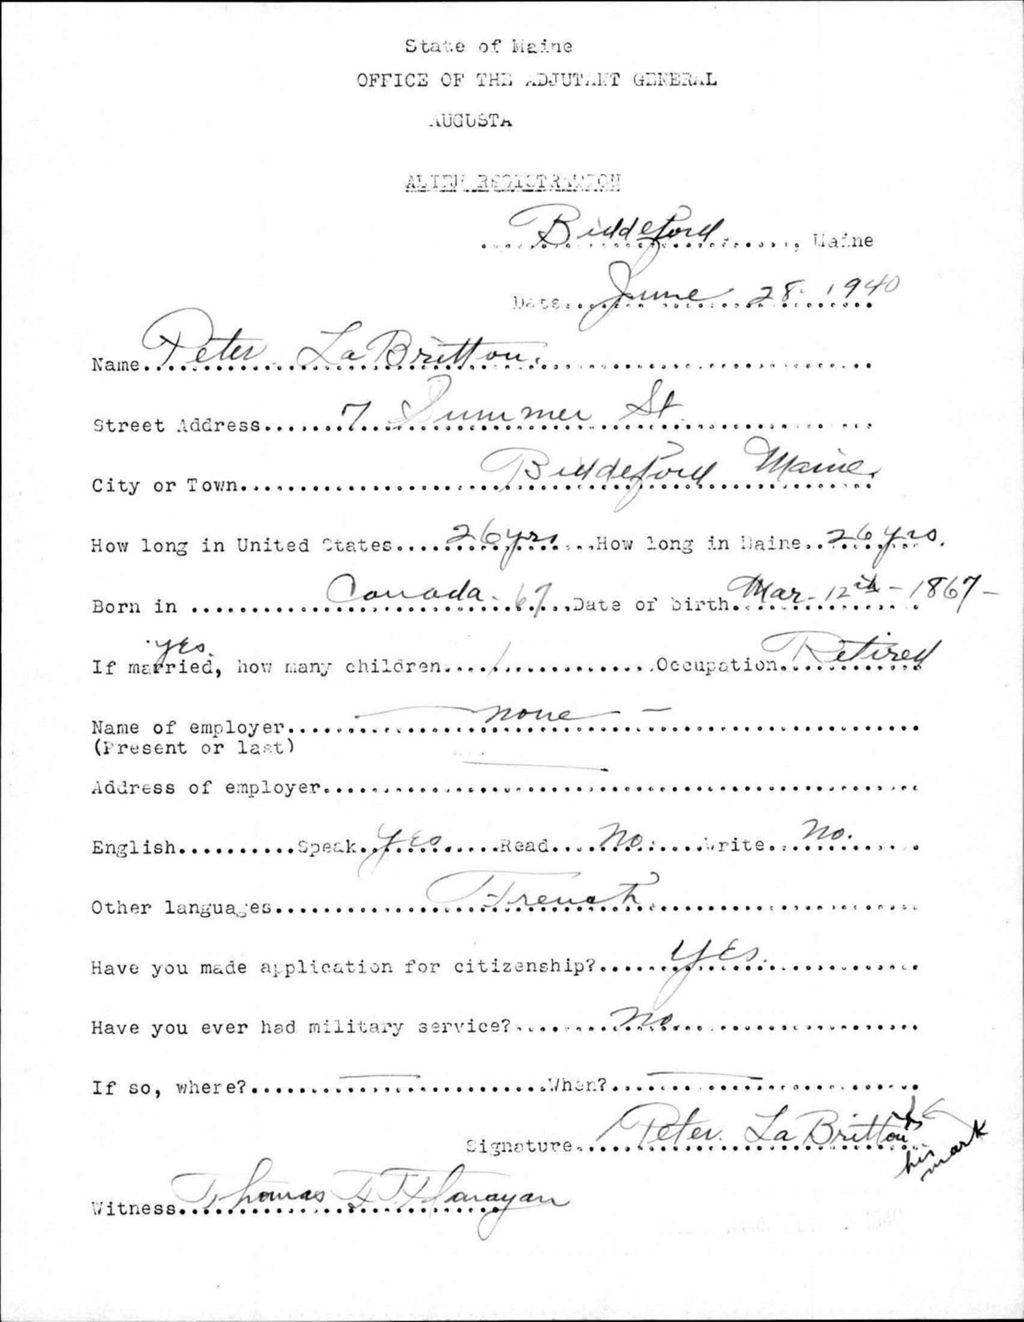 State of Maine
OFFICE OF THE ADJUTANT GENERAL
AUGUSTA
ALIEN REGISTRATION
Biddeford, Maine
Date June 28. 1940
Name Peter LaBritton.
Street Address 7 Summer St.
City or Town Biddeford Maine.
How long in United States 26 yrs How long in Maine 26 yrs.
Born in Canada - 67 Date of birth Mar - 12th - 1867 -
yes.
If married, how many children 1 Occupation Retired
Name of employer none
(Present or last)
Address of employer
English Speak yes Read No. Write No.
Other languages French
Have you made application for citizenship? Yes.
Have you ever had military service? No
If so, where? When?
Signature Peter LaBritton X
his mark
Witness Thomas